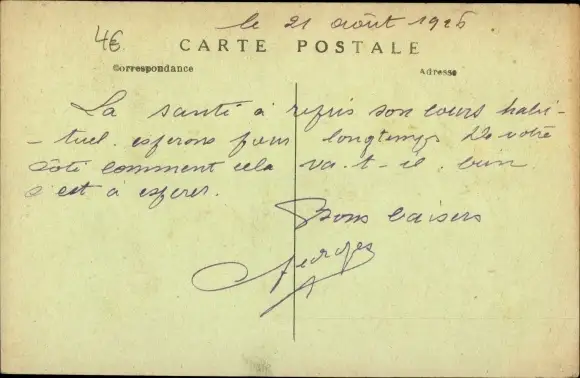 le 21 août 1926
4€
CARTE POSTALE
Correspondance
Adresse
La santé à repris son cours habi-
-tuel. esperons pour longtemps De votre
côté comment cela va-t-il. bien
c'est à esperer.
Bons baisers
Georges